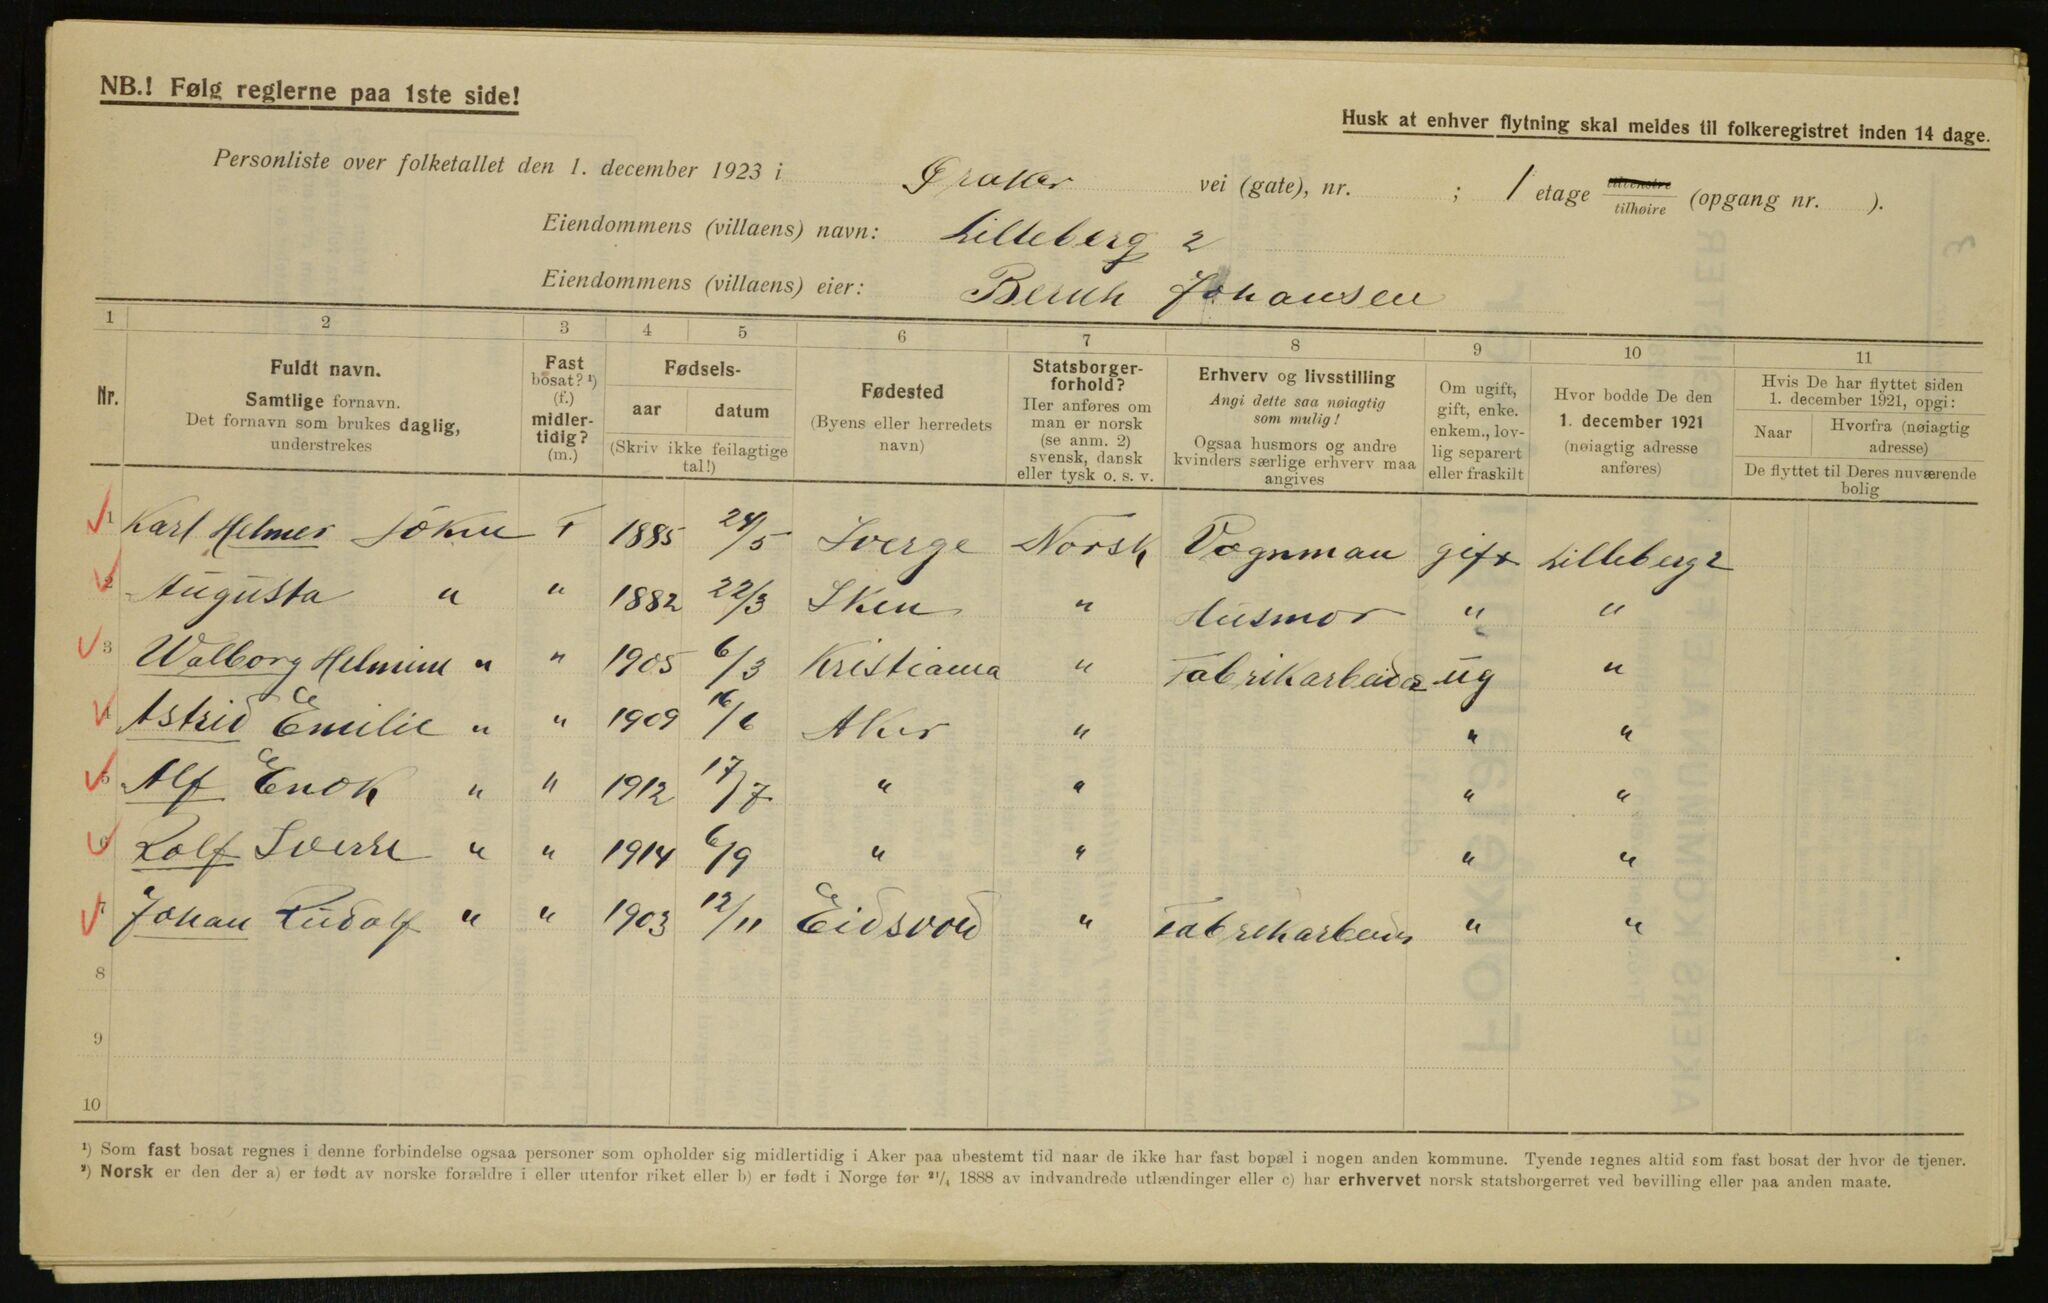 NB.! Følg reglerne paa 1ste side!
Husk at enhver flytning skal meldes til folkeregistret inden 14 dage.
Personliste over folketallet den 1. december 1923 i vei (gate), nr. ; 1 etage tilvenstre tilhøire (opgang nr. ).
Eiendommens (villaens) navn: Lilleberg 2
Eiendommens (villaens) eier: Bernh Johansen
1 2 3 4 5 6 7 8 9 10 11
Nr.
Fuldt navn.
Samtlige fornavn.
Det fornavn som brukes daglig,
understrekes
Fast
bosat? ¹)
(f.)
midler-
tidig?
(m.)
Fødsels-
aar datum
(Skriv ikke feilagtige
tal!)
Fødested
(Byens eller herredets
navn)
Statsborger-
forhold?
Her anføres om
man er norsk
(se anm. 2)
svensk, dansk
eller tysk o. s. v.
Erhverv og livsstilling
Angi dette saa nøiagtig
som mulig!
Ogsaa husmors og andre
kvinders særlige erhverv maa
angives
Om ugift,
gift, enke.
enkem., lov-
lig separert
eller fraskilt
Hvor bodde De den
1. december 1921
(nøiagtig adresse
anføres)
Hvis De har flyttet siden
1. december 1921, opgi:
Naar Hvorfra (nøiagtig
adresse)
De flyttet til Deres nuværende
bolig
1 Karl Helmer F 1885 24/5 Sverge Norsk Vognman gift Lilleberg 2
2 Augusta " " 1882 22/3 Sken " Husmor " "
3 Walborg Helmine " " 1905 6/3 Kristiania " Fabrikarbeider ug "
4 Astrid Emilie " " 1909 16/6 Aker " " "
5 Alf Enok " " 1912 17/7 " " " "
6 Rolf Sverre " " 1914 6/9 " " " "
7 Johan Rudolf " " 1903 12/11 Eidsvold " Fabrikarbeider " "
8
9
10
¹) Som fast bosat regnes i denne forbindelse ogsaa personer som opholder sig midlertidig i Aker paa ubestemt tid naar de ikke har fast bopæl i nogen anden kommune. Tyende regnes altid som fast bosat der hvor de tjener.
²) Norsk er den der a) er født av norske forældre i eller utenfor riket eller b) er født i Norge før 21/4 1888 av indvandrede utlændinger eller c) har erhvervet norsk statsborgerret ved bevilling eller paa anden maate.